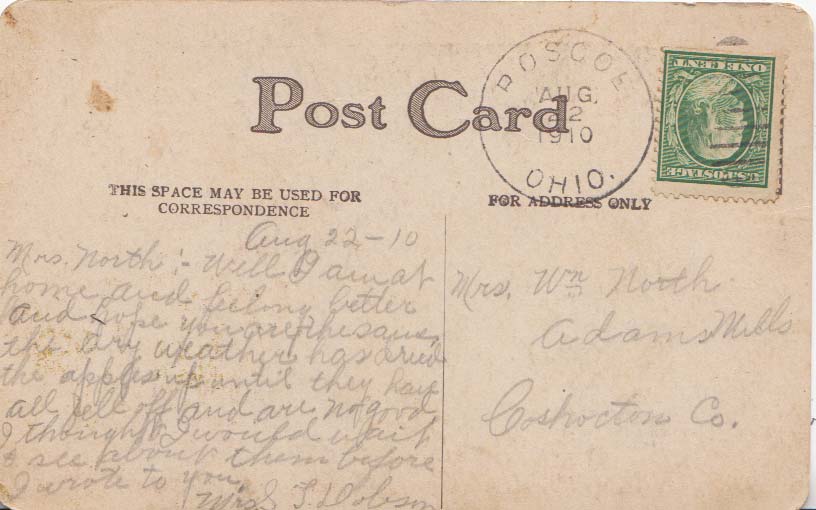 Post Card
ROSCOE
AUG.
22
1910
OHIO.
ONE CENT
U.S. POSTAGE
THIS SPACE MAY BE USED FOR
CORRESPONDENCE
FOR ADDRESS ONLY
Aug 22-10
Mrs. North:- Well I am at
home and feeling better
and hope you are the same,
the dry weather has dried
the apples up until they have
all fell off and are no good
I thought I would wait
& see about them before
I wrote to you.
Mrs T. Dobson
Mrs. Wm North
Adams Mills
Coshocton Co.